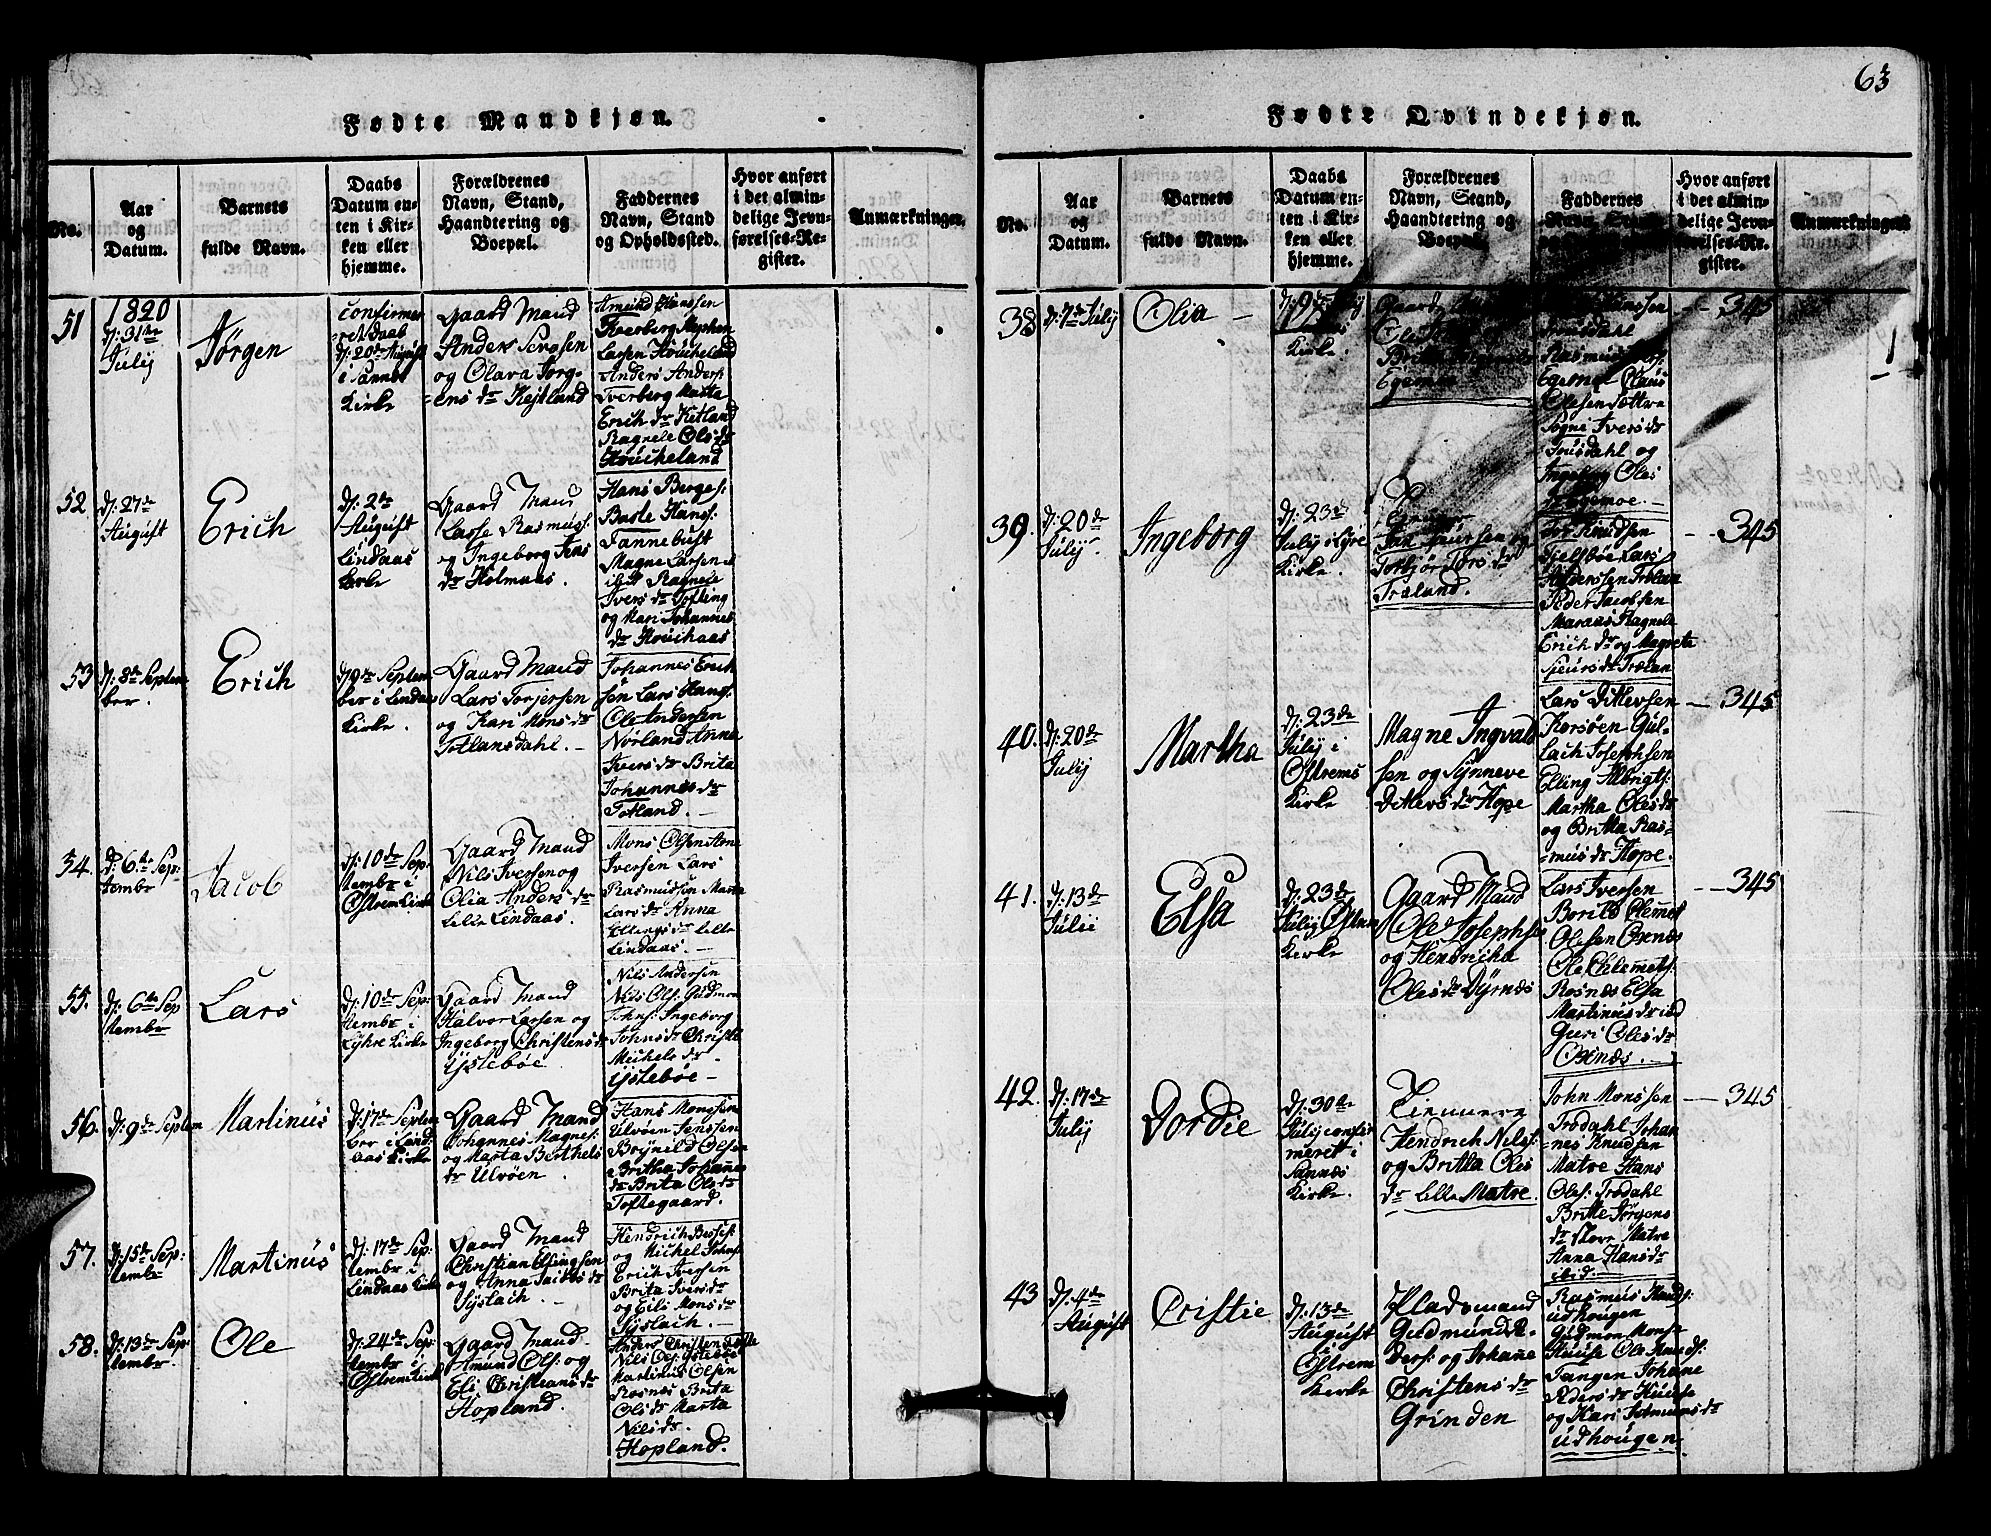 63
Fødte Mandkjøn.
No.
Aar
og
Datum.
Barnets
fulde Navn.
Daabs
Datum en-
ten i Kir-
ken eller
hjemme.
Forældrenes
Navn, Stand,
Haandtering og
Boepæl.
Faddernes
Navn, Stand
og Opholdssted.
Hvor anført
i det almin-
delige Jevn-
førelses-Re-
gister.
Anmærkninger.
51
1820
d: 31te
Julij
Jørgen
confirme
ret daab
d: 20de August
i Sannes
Kirke
Gaard Mand
Anders
og Olava Jørg-
ens dr Kejtland
Amund Hanssen
Kverberg
Lassen Houcheland
Anders Anders:
Tverberg Marta
Erich dr Kitland
Ragnele Ols dr
Houcheland
52
d: 27de
August
Erich
d: 2de
August
Lindaas
Kirke
Gaard Mand
Lasse Rasmus:
og Ingeborg Jens
dr Holmaas.
Hans Berges:
Basle Hans:
Dannebust
Magne Larsen
ibd Ragnele
Ivers dr Tofting
og Mari Johannes
dr Houchaas
53
d: 8de Septem
ber.
Erich
d: 9de Septem
ber i Lindaas
Kirke.
Gaard Mand
Lars Torjersen
og Kari Mons dr
Totlansdahl.
Johannes Erich
sen Lars Hans:
Ole Andersen
Nørland Anna
Ivers dr Brita
Johannes dr
Totland.
54.
d: 6te Sep:
tembr
Jacob
d: 10de Sep:
tembr i
Østrem Kirke
Gaard Mand
Nils Iversen og
Olia Anders dr
Lille Lindaas.
Mons Olsen Arne
Iversen Lars
Rasmussen Marta
Lars dr Anna
Ellings dr Lille
Lindaas.
55.
d: 6te Sep
tembr
Lars
d: 10de Sep:
tembr i
Lyhre Kirke
Gaard Mand
Halvor Larsen og
Ingeborg Christens dr
Ystebøe
Nils Andersen
Nils Ols: Gudmon
Johns: Ingeborg
Johns dr Christi
Michels dr
Ystebøe
56.
d: 9de Septem
Martinus
d: 17de Septem
ber i Lind
aas Kirke
Gaard Mand
Johannes Magnes:
og Marta Berthels
dr Ulvøen.
Hans Monssen
Ulvøen Jenssen
Brynild Olsen
Britha Johannes
dr Brita Ols dr
Toftegaard.
57.
d: 15de Sep:
tembr
Martinus
d: 17de Sep:
tembr i
Lindaas Kirke
Gaard Mand
Christian Ellingsen
og Anna Jacobs dr
Syslach.
Hendrich
og Michel Johns:
Erich Iversen
Brita Ivers dr
og Eils Mons dr
Syslach.
58.
d: 13de Sep
tembr.
Ole
d: 24de Sep:
tembr i
Østrem Kirke
Gaard Mand
Amund Ols: og
Eli Christians dr
Hopland.
Anders Christensen
Nils Ols: Ystebøe
Martinus Olsen
Rosnæs Brita
Ols dr Marta
Nils dr
Hopland.
Fødte Qvindekjøn.
No.
Aar
og
Datum.
Barnets
fulde Navn.
Daabs
Datum en-
ten i Kir-
ken eller
hjemme.
Forældrenes
Navn, Stand,
Haandtering og
Boepæl.
Faddernes
Navn, Stand
Hvor anført
i det almin-
delige Jevn-
førelses-Re-
gister.
Anmærkninger.
38
d: 7de Julij
Olia
d: 9de July
Kirke.
Gaard
Egemoe
Rasmus
Egemoe Claus
Olesen
Sogne Ivers dr
Tousdahl og
Ingeborg Oles
dr Egemoe.
345
39.
d: 20de
Julij
Ingeborg
d: 23de
Julij i Lyre
Kirke.
Torbjør Tors dr
Træland.
Knudsen
Lars
Anderssen Trælan
Peder Jacobsen
Maraas Ragnele
Erich dr og Magreta
Sjeurs dr Trælan
345
40.
d: 20de
Julij
Martha
d: 23de
Julij i
Østrems
Kirke
Magne Ingvald
sen og Synneve
Ditlevs dr Hope
Lars Ditlevsen
Korsøen Gul-
lach Josephsen
Elling Albrigts:
Martha Oles dr
og Britta Ras-
mus dr Hope.
345
41.
d: 13de
Julii
Elsa
d: 23de
Julij Østrem
Kirke
Gaard Mand
Ole Josephsen
og Hendricha
Oles dr Dyrnæs
Lars Iversen
Borild Clemet
Olesen Oxnæs
Ole Chlemets:
Rosnæs Elsa
Martinus dr ibd
Guri Oles dr
Oxnæs.
345
42.
d: 17de
Julij
Dordie
d: 30te
Julij confir
meret i
Sannæs
Kirke.
Tiennere
Hendrich Nils:
og Britta Oles
dr Lille Matre.
John Monssen
Trodahl Johan
nes Knudsen
Matre Hans
Oles: Trodahl
Britte Jørgens
dr Store Matre
Anna Hans dr
ibid:
345
43
d: 4de
August
Cristie
d: 13de
August
i
Østrem
Kirke
Pladsmand
Gudmund A-
ders: og Johane
Christens dr
Grinden
Rasmus Knuds:
udhougen
Gudmon Mons:
Huuse Ole Knuds:
Tangen Johane
Aders dr Huuse
og Kari Salmuns dr
udhougen